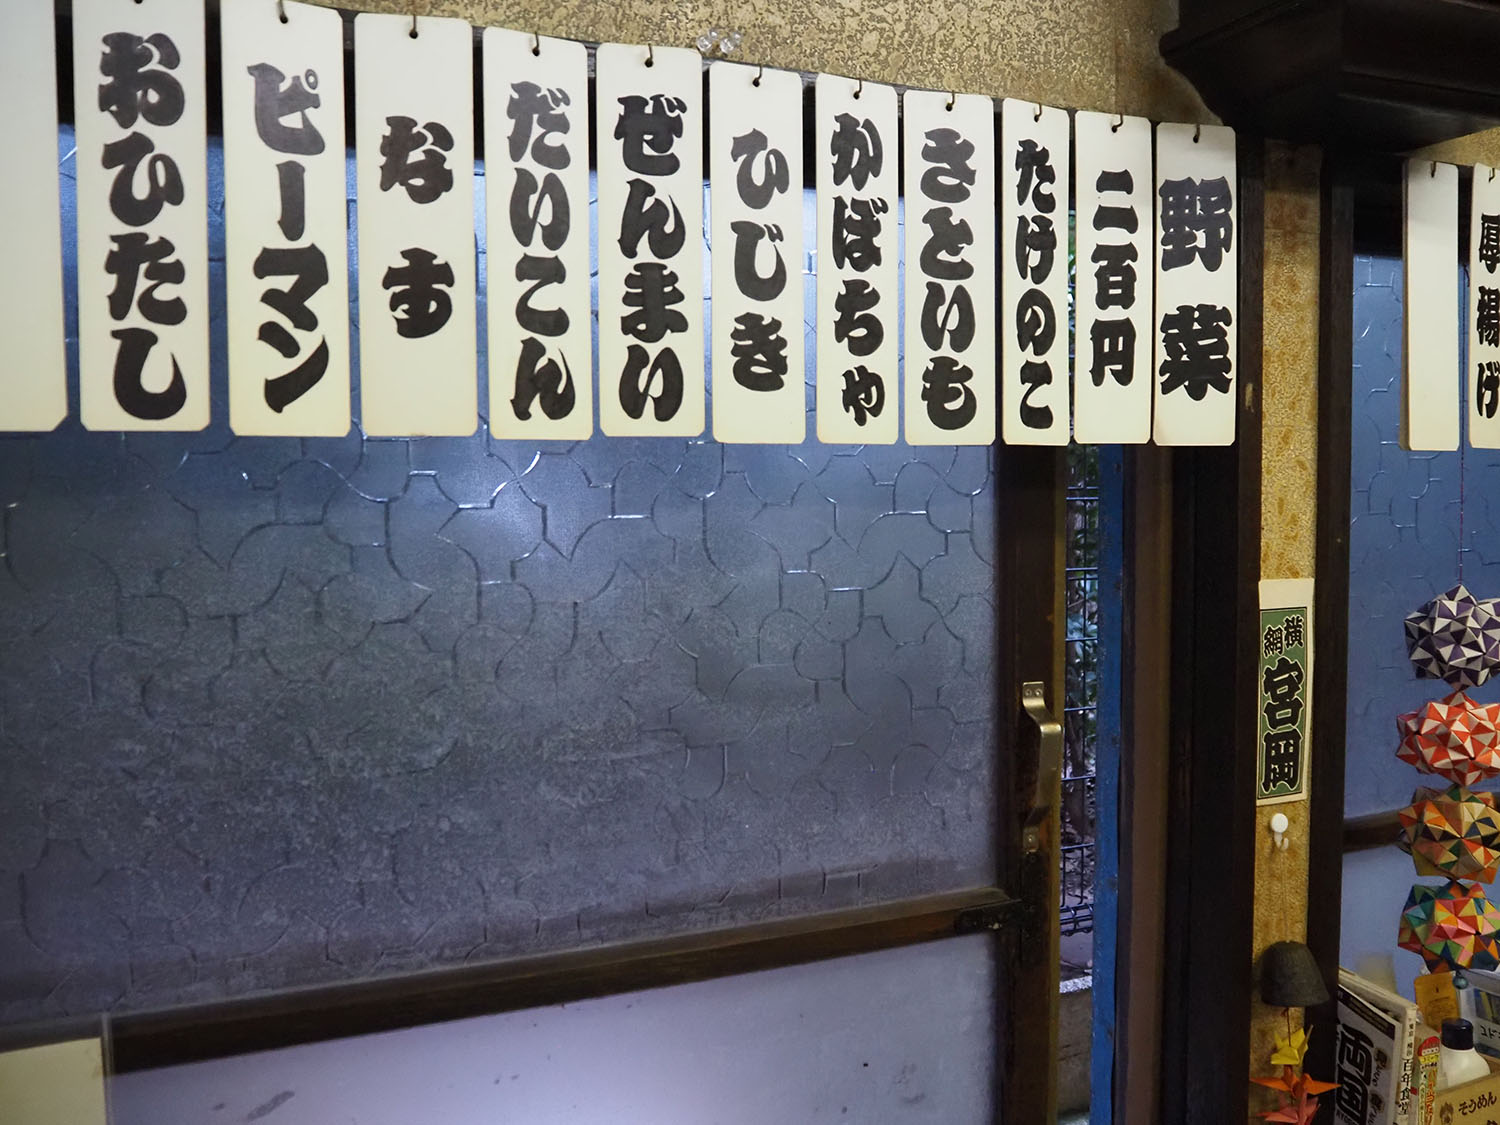 厚揚げ
野菜
二百円
たけのこ
さといも
かぼちゃ
ひじき
ぜんまい
だいこん
なす
ピーマン
おひたし
横網
宮岡
両国
百年食堂
そうめん